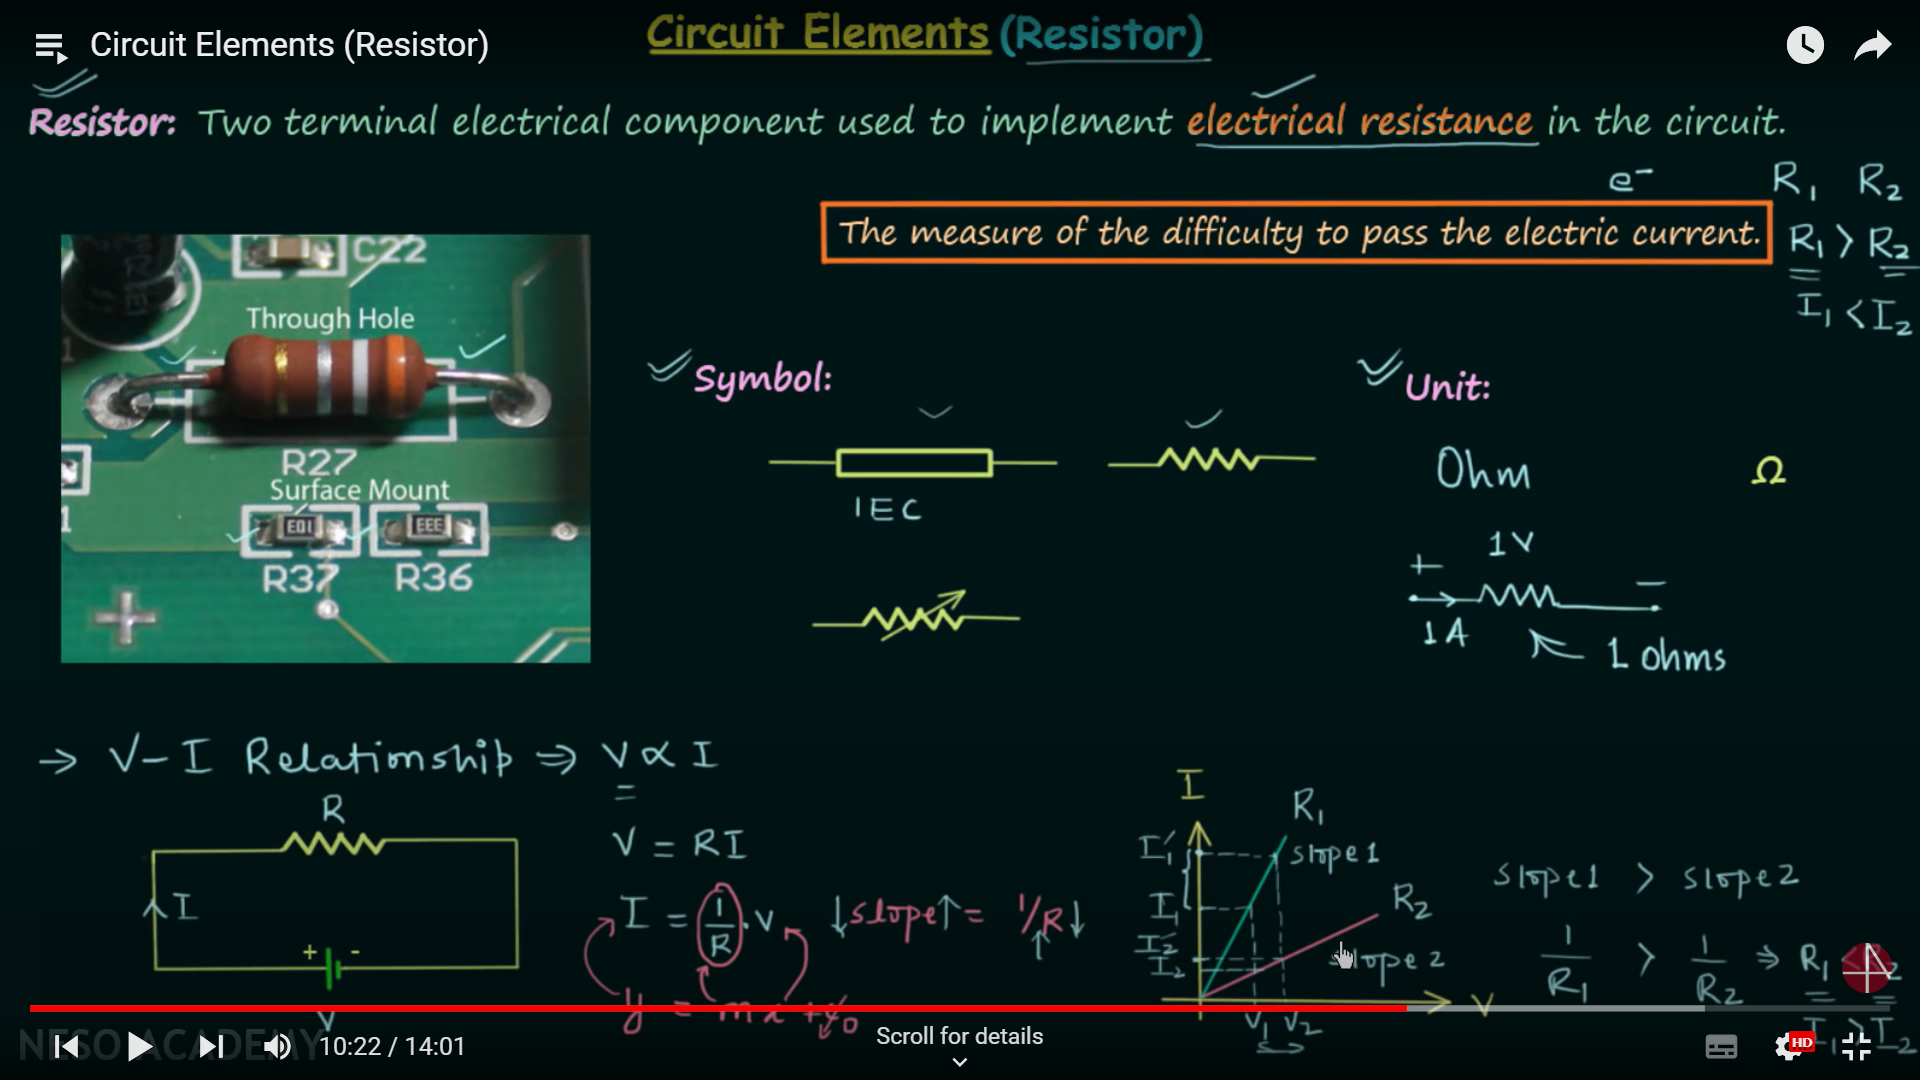 Circuit Elements (Resistor)
Circuit Elements (Resistor)
Resistor: Two terminal electrical component used to implement electrical resistance in the circuit.
e⁻ R₁ R₂
The measure of the difficulty to pass the electric current.
R₁ > R₂
I₁ < I₂
C22
Through Hole
R27
Surface Mount
E01 EEE
R37 R36
Symbol:
IEC
Unit:
Ohm Ω
1V
+ −
1A
1 ohms
→ V-I Relationship ⇒ V ∝ I
R
I
+ -
V
V = RI
I = 1/R · V
↓slope↑ = 1/R↓
↑
y = mx +
I
R₁
I₁′ slope1
I₁ R₂
I₂′
I₂ slope 2
V₁ V₂ V
slope1 > slope2
1/R₁ > 1/R₂ ⇒ R₁
I₁ > I₂
NESO ACADEMY
10:22 / 14:01
Scroll for details
HD